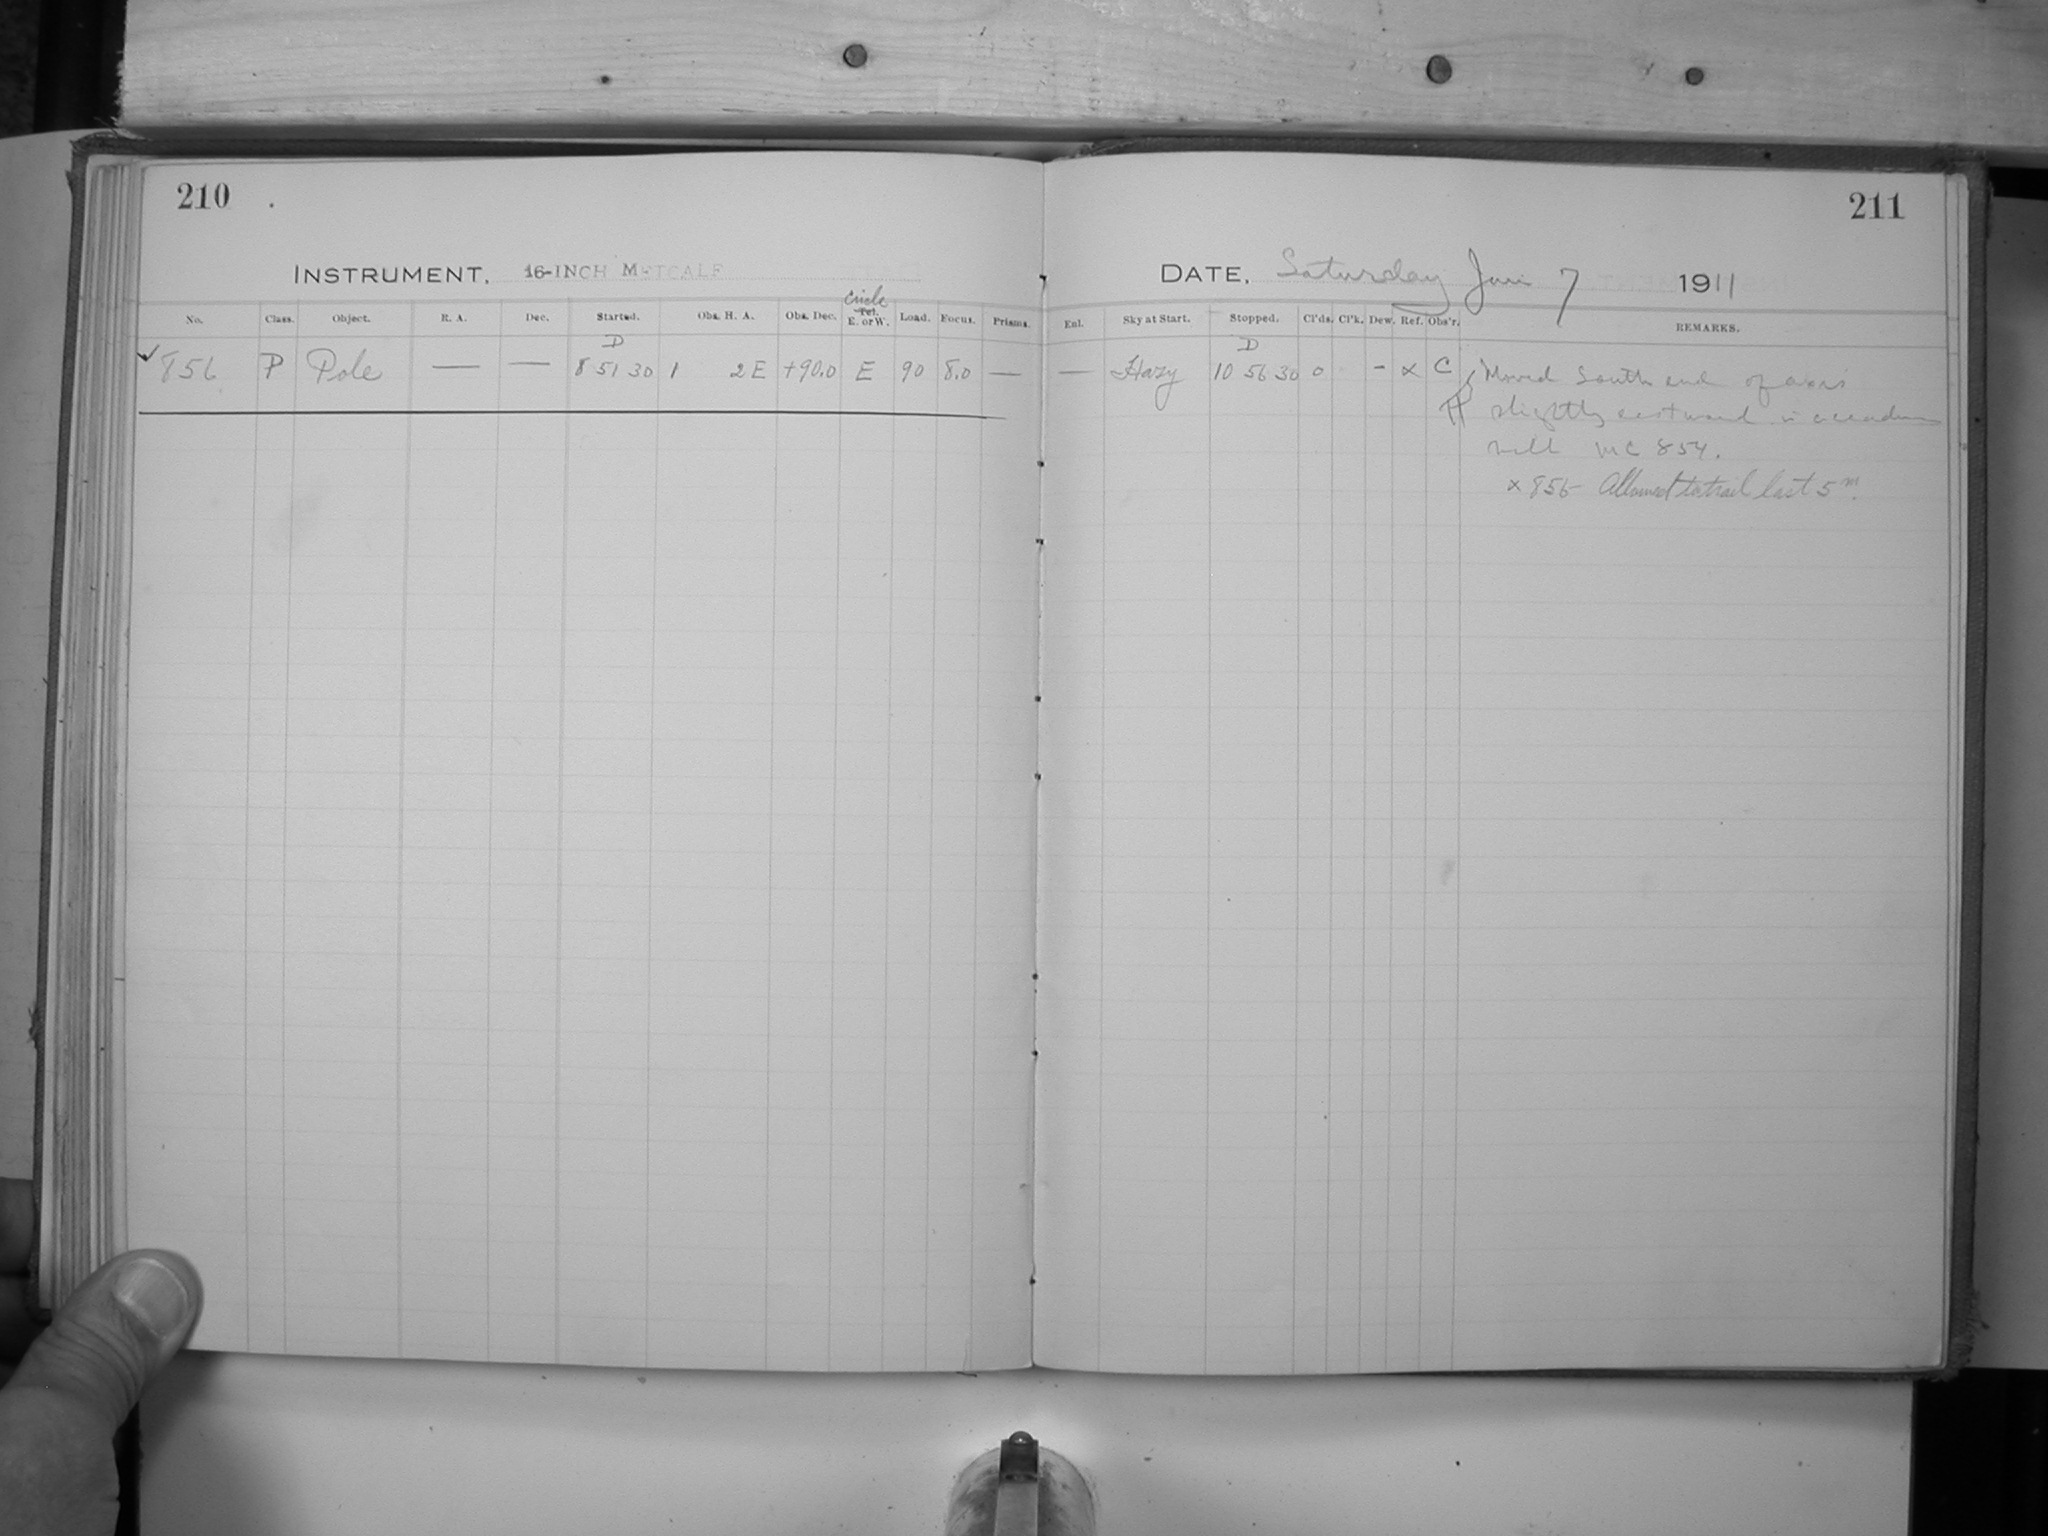 210
INSTRUMENT. 16-INCH METCALF
No. Class. Object. R. A. Dec. Started. Obs. H. A. Obs. Dec. Circle Tel. E. or W. Load. Focus. Prisms.
D
✓856 P Pole — — 8 51 30 1 2 E +90.0 E 90 8.0 —
211
DATE. Saturday Jan 7 1911
Enl. Sky at Start. Stopped. Cl'ds. Cl'k. Dew. Ref. Obs'r. REMARKS.
D
— Hazy 10 56 30 0 - x C Moved South end of axis
slightly eastward in accordance
with MC 854.
x 856 Allowed to trail last 5 m.